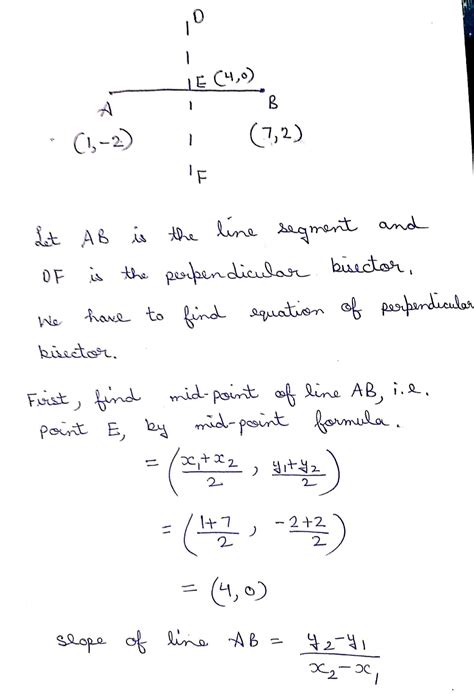 D
E (4,0)
A
B
(1,-2)
(7,2)
F
Let AB is the line segment and
DF is the perpendicular bisector.
We have to find equation of perpendicular
bisector.
First, find mid-point of line AB, i.e.
point E, by mid-point formula.
= (x₁+x₂/2 , y₁+y₂/2)
= (1+7/2 , -2+2/2)
= (4,0)
slope of line AB = y₂-y₁/x₂-x₁